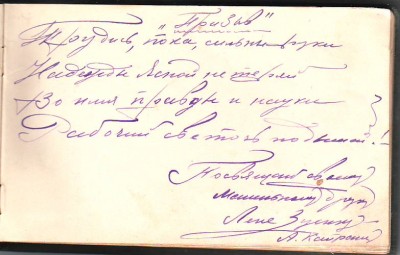 "Призыв"
Трудись, пока сильны руки
Надежды ясной не теряй
Во имя правды и науки
Рабочий светоч подымай!
Посвящаю своему
другу
Лене
А.